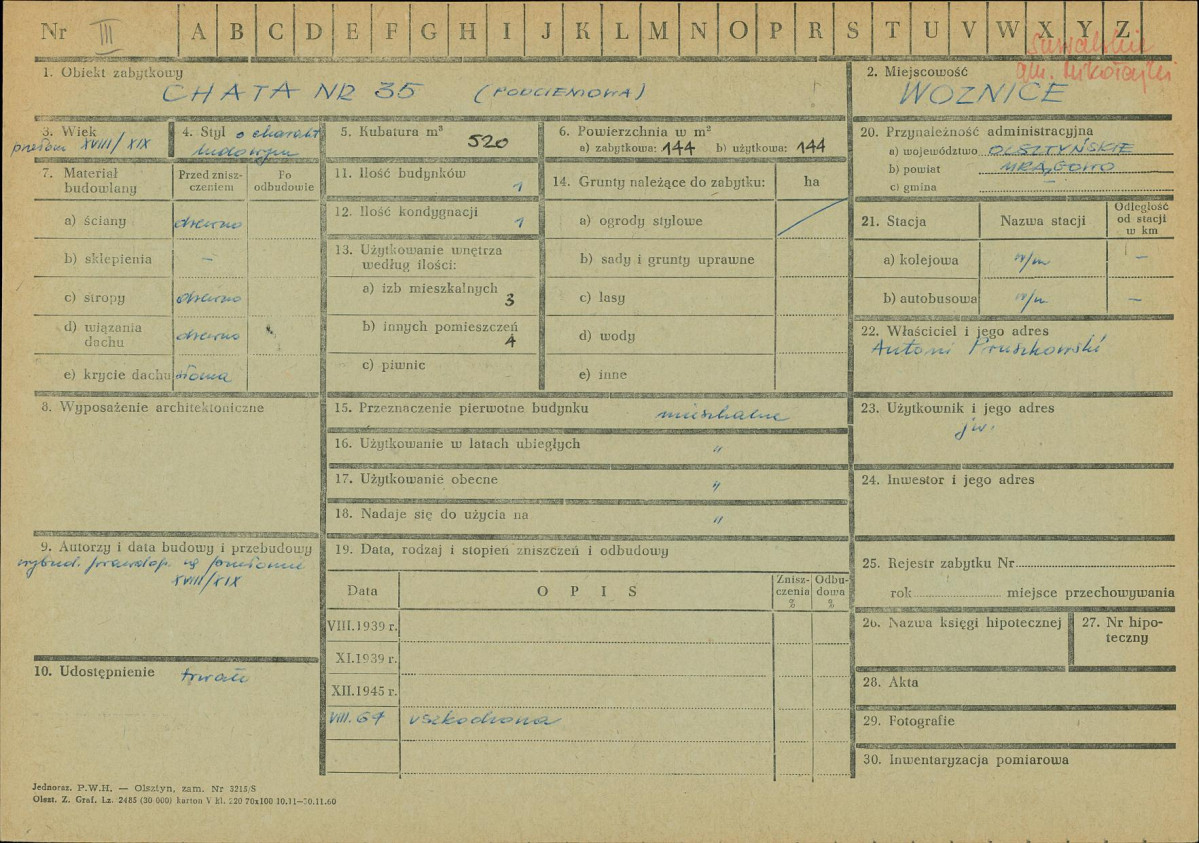 Nr III A B C D E F G H I J K L M N O P R S T U V W X Y Z
Suwalskie
gm. Mikołajki
1. Obiekt zabytkowy
CHATA NR 35 (PODCIENIOWA)
2. Miejscowość
WOZNICE
3. Wiek
przełom XVIII/XIX
4. Styl o charakt
ludowym
5. Kubatura m³
520
6. Powierzchnia w m²
a) zabytkowa: 144 b) użytkowa: 144
7. Materiał budowlany
Przed zniszczeniem
Po odbudowie
a) ściany drewno
b) sklepienia –
c) stropy drewno
d) wiązania dachu drewno
e) krycie dachu słoma
8. Wyposażenie architektoniczne
9. Autorzy i data budowy i przebudowy
wybud. prawdop. na przełomie
XVIII/XIX
10. Udostępnienie trwałe
11. Ilość budynków
1
12. Ilość kondygnacji
1
13. Użytkowanie wnętrza
według ilości:
a) izb mieszkalnych
3
b) innych pomieszczeń
4
c) piwnic
14. Grunty należące do zabytku: ha
a) ogrody stylowe
b) sady i grunty uprawne
c) lasy
d) wody
e) inne
15. Przeznaczenie pierwotne budynku mieszkalne
16. Użytkowanie w latach ubiegłych "
17. Użytkowanie obecne "
18. Nadaje się do użycia na "
19. Data, rodzaj i stopień zniszczeń i odbudowy
Data
O P I S
Zniszczenia %
Odbudowa %
VIII.1939 r.
XI.1939 r.
XII.1945 r.
VIII. 67 uszkodzona
20. Przynależność administracyjna
a) województwo OLSZTYŃSKIE
b) powiat MRĄGOWO
c) gmina –
21. Stacja
Nazwa stacji
Odległość od stacji w km
a) kolejowa w/m –
b) autobusowa w/m –
22. Właściciel i jego adres
Antoni Pruszkowski
23. Użytkownik i jego adres
jw.
24. Inwestor i jego adres
25. Rejestr zabytku Nr
rok miejsce przechowywania
26. Nazwa księgi hipotecznej
27. Nr hipoteczny
28. Akta
29. Fotografie
30. Inwentaryzacja pomiarowa
Jednoraz. P.W.H. — Olsztyn, zam. Nr 3215/S
Olszt. Z. Graf. Lz. 2485 (30 000) karton V kl. 220 70x100 10.11—30.11.60